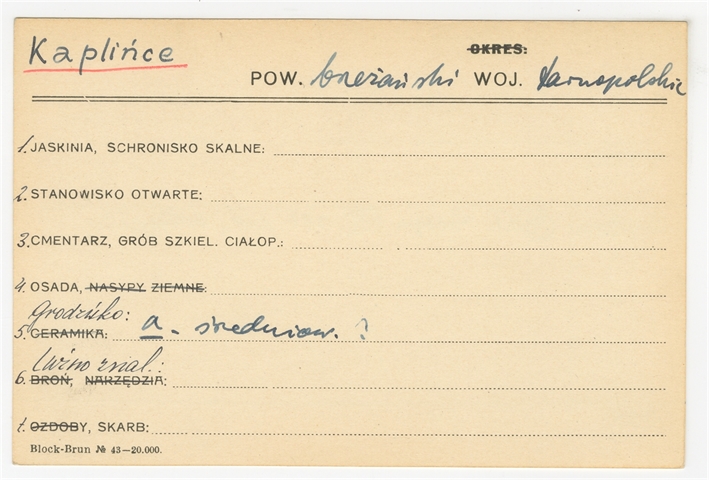 Kaplińce
OKRES:
POW. brzeżański WOJ. tarnopolskie
1. JASKINIA, SCHRONISKO SKALNE:
2. STANOWISKO OTWARTE:
3. CMENTARZ, GRÓB SZKIEL. CIAŁOP.:
4. OSADA, NASYPY ZIEMNE:
Grodzisko:
5. CERAMIKA: a. średniow. ?
luźno znal.:
6. BROŃ, NARZĘDZIA:
7. OZDOBY, SKARB:
Block-Brun № 43—20.000.